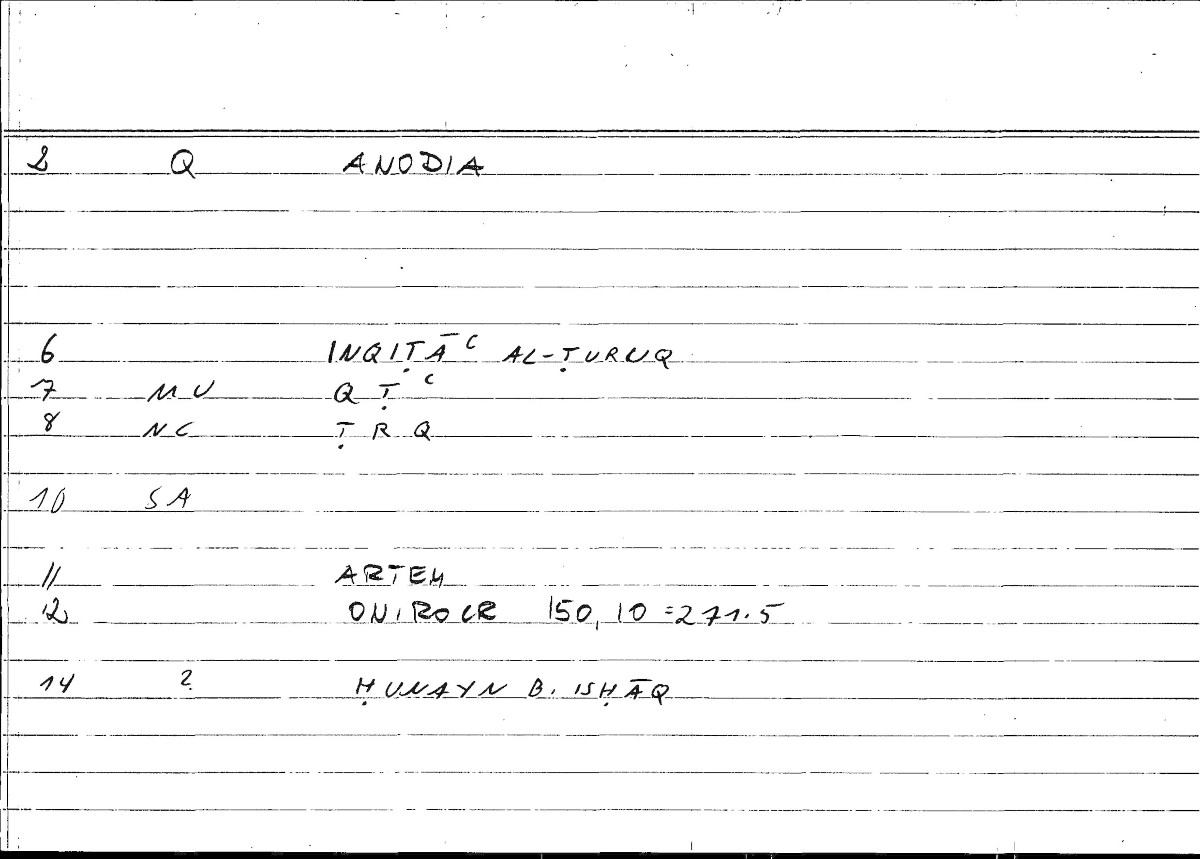 2 Q ANODIA
6 INQIṬĀʿ AL-ṬURUQ
7 MU QṬʿ
8 NC ṬRQ
10 SA
11 ARTEM
12 ONIROCR 150,10=271.5
14 2 ḤUNAYN B. ISḤĀQ